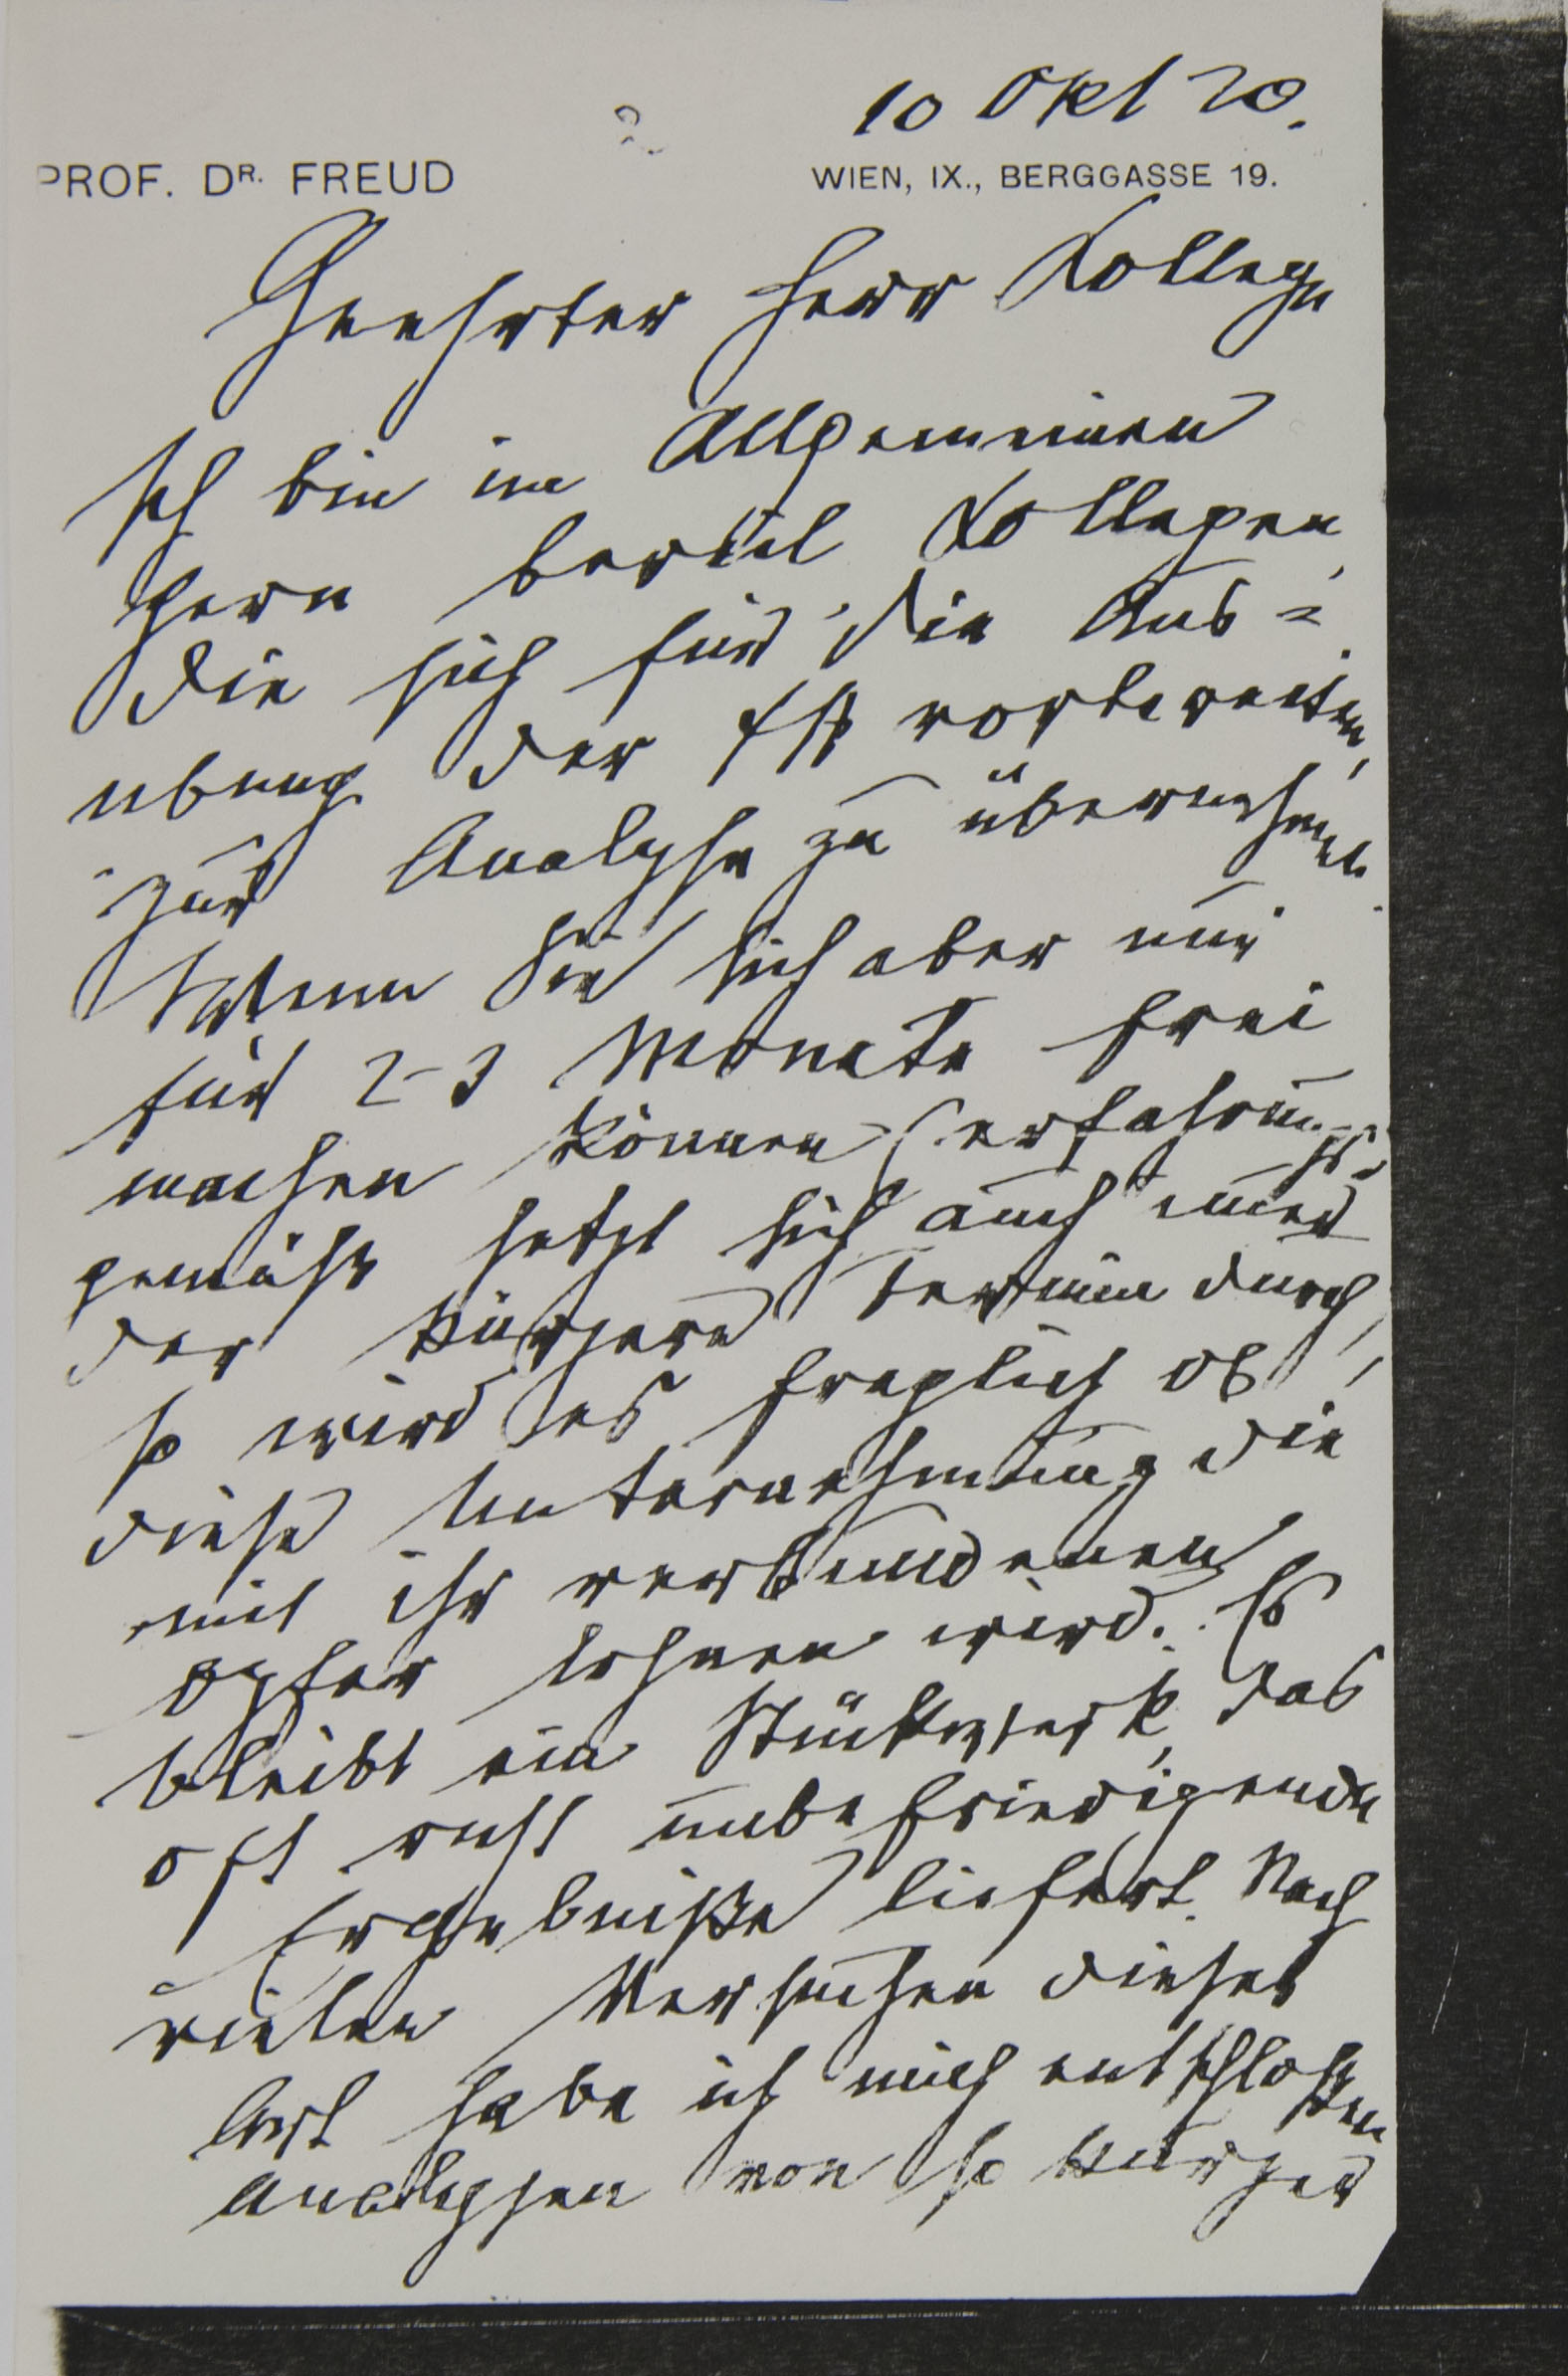 10 Okt 20.
PROF. DR. FREUD
WIEN, IX., BERGGASSE 19.
Geehrter Herr Kollege
Ich bin im Allgemeinen
gern bereit Kollegen,
die sich für die Aus-
übung der ΨA vorbereiten,
zur Analyse zu übernehmen.
Wenn Sie sich aber nur
für 2-3 Monate frei
machen können (erfahrungs-
gemäß setzt sich auch immer
der kürzere Termin durch),
so wird es fraglich ob
diese Unternehmung die
mit ihr verbundenen
Opfer lohnen wird. Es
bleibt ein Stückwerk, das
oft recht unbefriedigende
Ergebniße liefert. Nach
vielen Versuchen dieser
Art habe ich mich entschloßen
Analysen von so kurzer